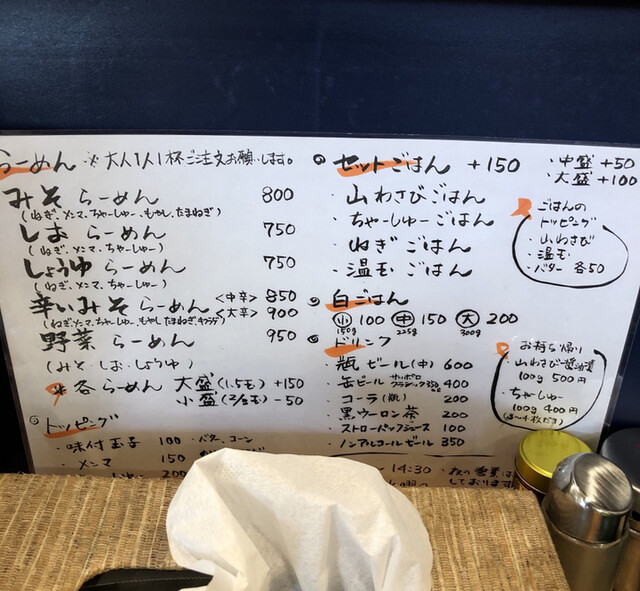 らーめん ※大人1人1杯ご注文お願いします。
みそらーめん 800
(ねぎ、メンマ、ちゃーしゅー、もやし、たまねぎ)
しおらーめん 750
(ねぎ、メンマ、ちゃーしゅー)
しょうゆらーめん 750
(ねぎ、メンマ、ちゃーしゅー)
辛いみそらーめん <中辛> 850
<大辛> 900
(ねぎ、メンマ、ちゃーしゅー、もやし、たまねぎ
野菜らーめん 950
(みそ・しお・しょうゆ)
※各らーめん 大盛(1.5玉) +150
小盛(2/3玉) -50
トッピング
・味付玉子 100 ・バター、コーン
・メンマ 150
200
セットごはん +150
・中盛 +50
・大盛 +100
・山わさびごはん
・ちゃーしゅーごはん
・ねぎごはん
・温玉ごはん
ごはんの
トッピング
・山わさび
・温玉
・バター 各50
白ごはん
小 100 中 150 大 200
150g 225g 300g
ドリンク
・瓶ビール(中) 600
・缶ビール サッポロ クラシック350 400
・コーラ(瓶) 200
・黒ウーロン茶 200
・ストローパップジュース 100
・ノンアルコールビール 350
お持ち帰り
・山わさび醤油漬
100g 500円
・ちゃーしゅー
100g 400円
(3〜4枚だョ)
〜14:30 ・夜の営業は
しております